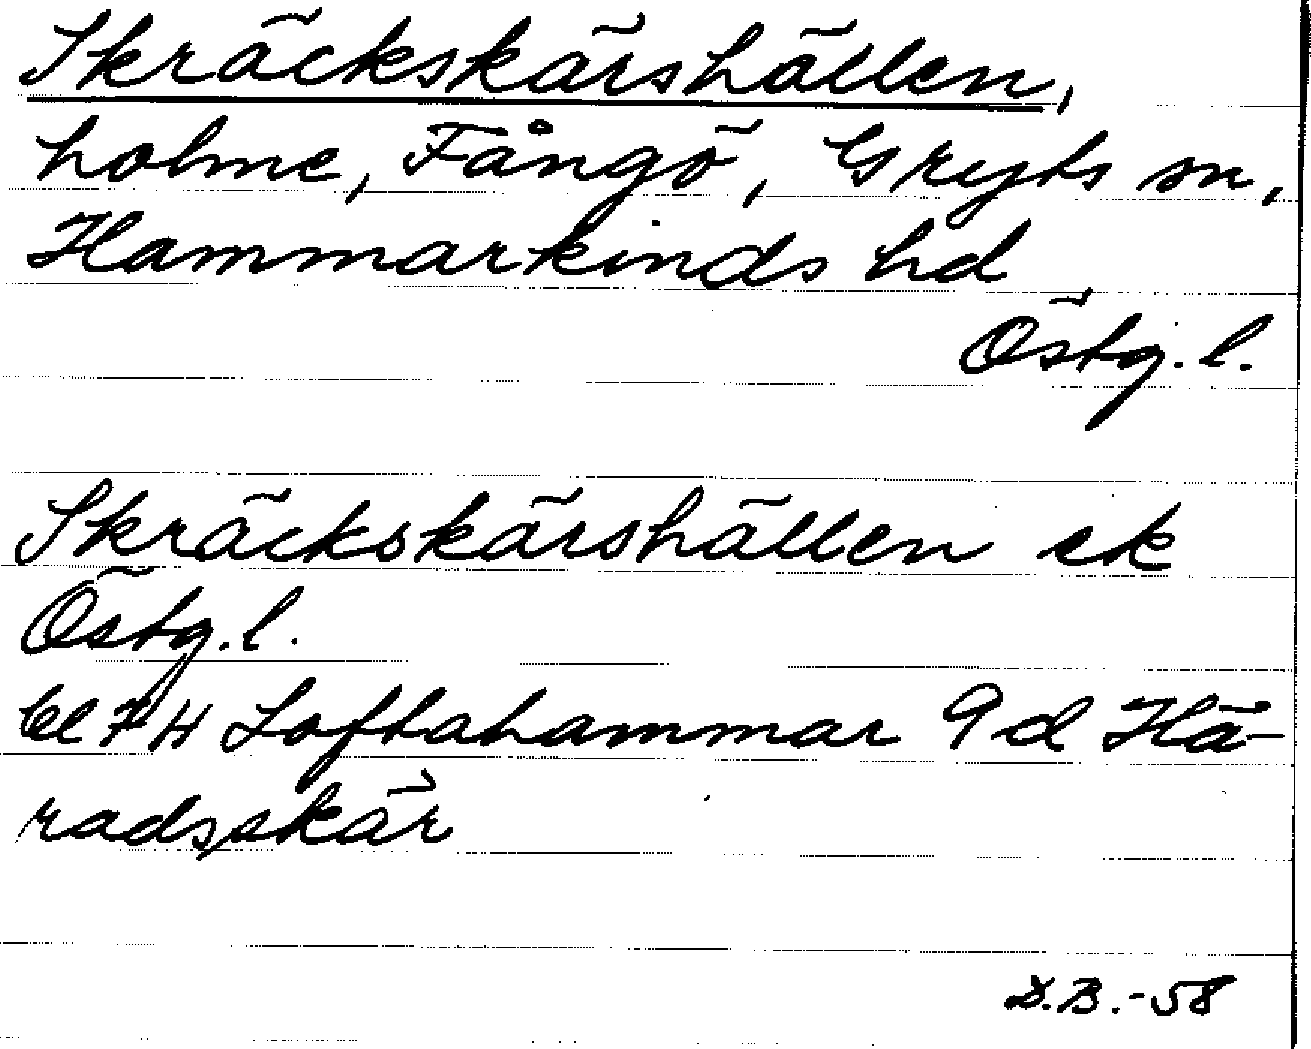 Skräckskärshällen,
holme, Fångö, Gryts sn,
Hammarkinds hd
Östg. l.
Skräckskärshällen ek
Östg. l.
bl 7 H Loftahammar 9d Hä-
radsskär
D.B. -58